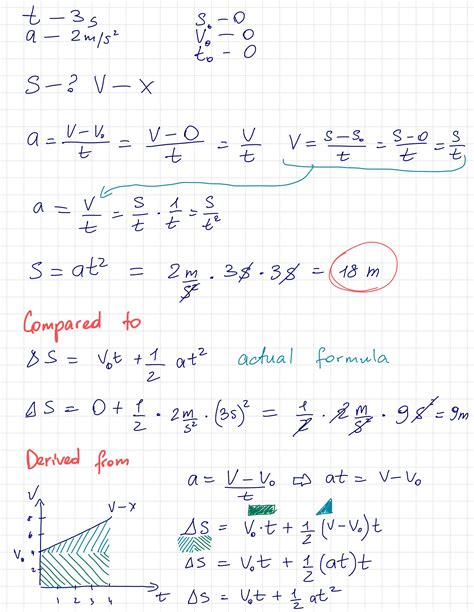 t – 3s   S₀ – 0
a – 2m/s²   V₀ – 0
t₀ – 0
S – ?   V – x
a = (V – V₀)/t = (V – 0)/t = V/t   V = (S – S₀)/t = (S – 0)/t = S/t
a = V/t = S/t · 1/t = S/t²
S = at² = 2 m/s² · 3s · 3s = 18 m
Compared to
ΔS = V₀t + 1/2 at²   actual formula
ΔS = 0 + 1/2 · 2 m/s² · (3s)² = 1/2 · 2 m/s² · 9 s² = 9m
Derived from
a = (V – V₀)/t ⇨ at = V – V₀
ΔS = V₀·t + 1/2 (V – V₀)t
ΔS = V₀t + 1/2 (at)t
ΔS = V₀t + 1/2 at²
V
V – x
8
6
V₀ 4
2
1 2 3 4 t